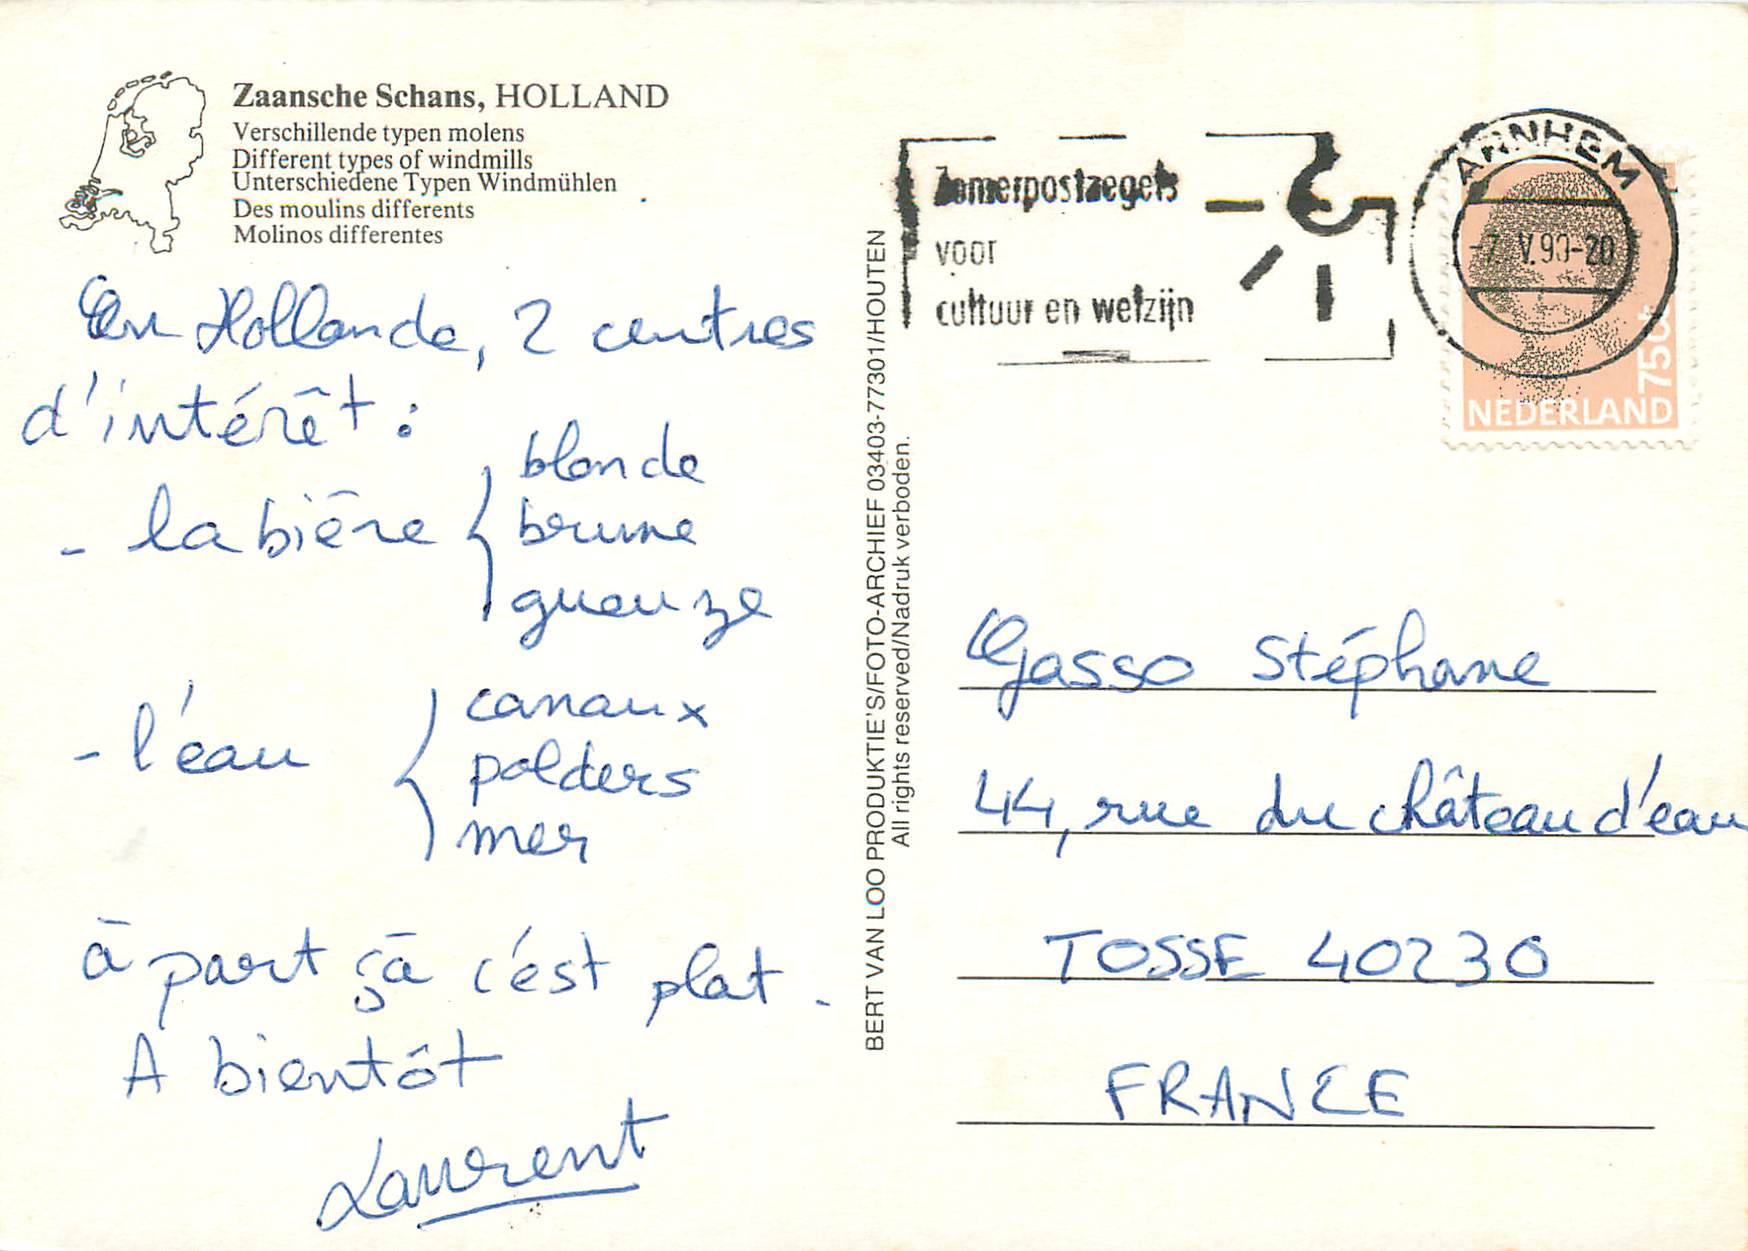 Zaansche Schans, HOLLAND
Verschillende typen molens
Different types of windmills
Unterschiedene Typen Windmühlen
Des moulins differents
Molinos differentes
En Hollande, 2 centres
d'intérêt :
- la bière { blonde
brune
gueuze
- l'eau { canaux
polders
mer
à part çà c'est plat.
A bientôt
Laurent
BERT VAN LOO PRODUKTIE'S/FOTO-ARCHIEF 03403-77301/HOUTEN
All rights reserved/Nadruk verboden.
Zomerpostzegels
voor
cultuur en welzijn
ARNHEM
-7.V.90-20
75ct
NEDERLAND
Gasso Stéphane
44, rue du château d'eau
TOSSE 40230
FRANCE